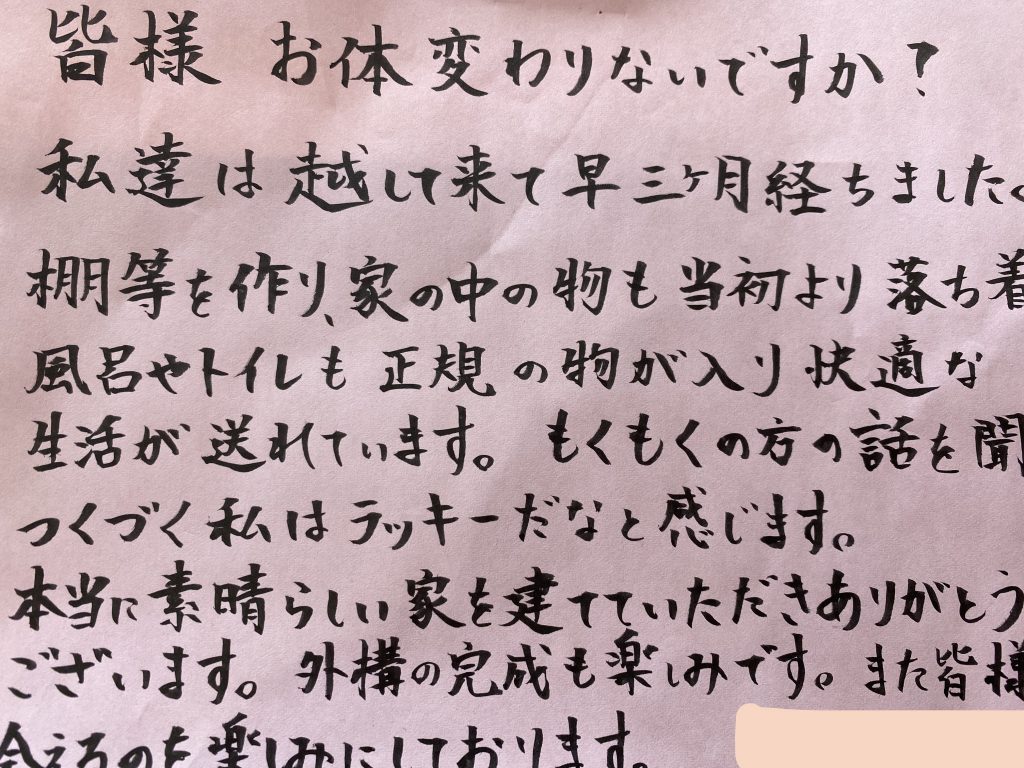 皆様 お体変わりないですか?
私達は越して来て早三ヶ月経ちました。
棚等を作り、家の中の物も当初より落ち着
風呂やトイレも正規の物が入り快適な
生活が送れています。 もくもくの方の話を聞
つくづく私はラッキーだなと感じます。
本当に素晴らしい家を建てていただきありがとう
ございます。外構の完成も楽しみです。また皆様
会えるのを楽しみにしております。